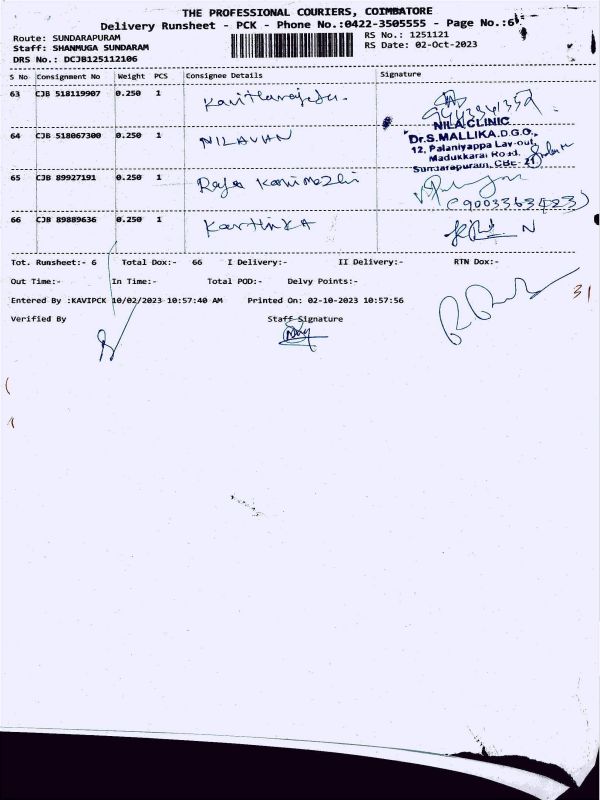 THE PROFESSIONAL COURIERS, COIMBATORE
Delivery Runsheet - PCK - Phone No.:0422-3505555 - Page No.:6
Route: SUNDARAPURAM
RS No.: 1251121
Staff: SHANMUGA SUNDARAM
RS Date: 02-Oct-2023
DRS No.: DCJB125112106
S No Consignment No Weight PCS Consignee Details Signature
63 CJB 518119907 0.250 1
NILA CLINIC
64 CJB 518067300 0.250 1 NILAVAN
Dr.S.MALLIKA.D.G.O.,
12, Palaniyappa Lay-out,
Madukkarai Road,
Sundarapuram, CBE- 21
65 CJB 89927191 0.250 1 Raja Kanimozhi
66 CJB 89889636 0.250 1 Karthika
Tot. Runsheet:- 6 Total Dox:- 66 I Delivery:- II Delivery:- RTN Dox:-
Out Time:- In Time:- Total POD:- Delvy Points:-
Entered By :KAVIPCK 10/02/2023 10:57:40 AM Printed On: 02-10-2023 10:57:56
31
Verified By Staff Signature